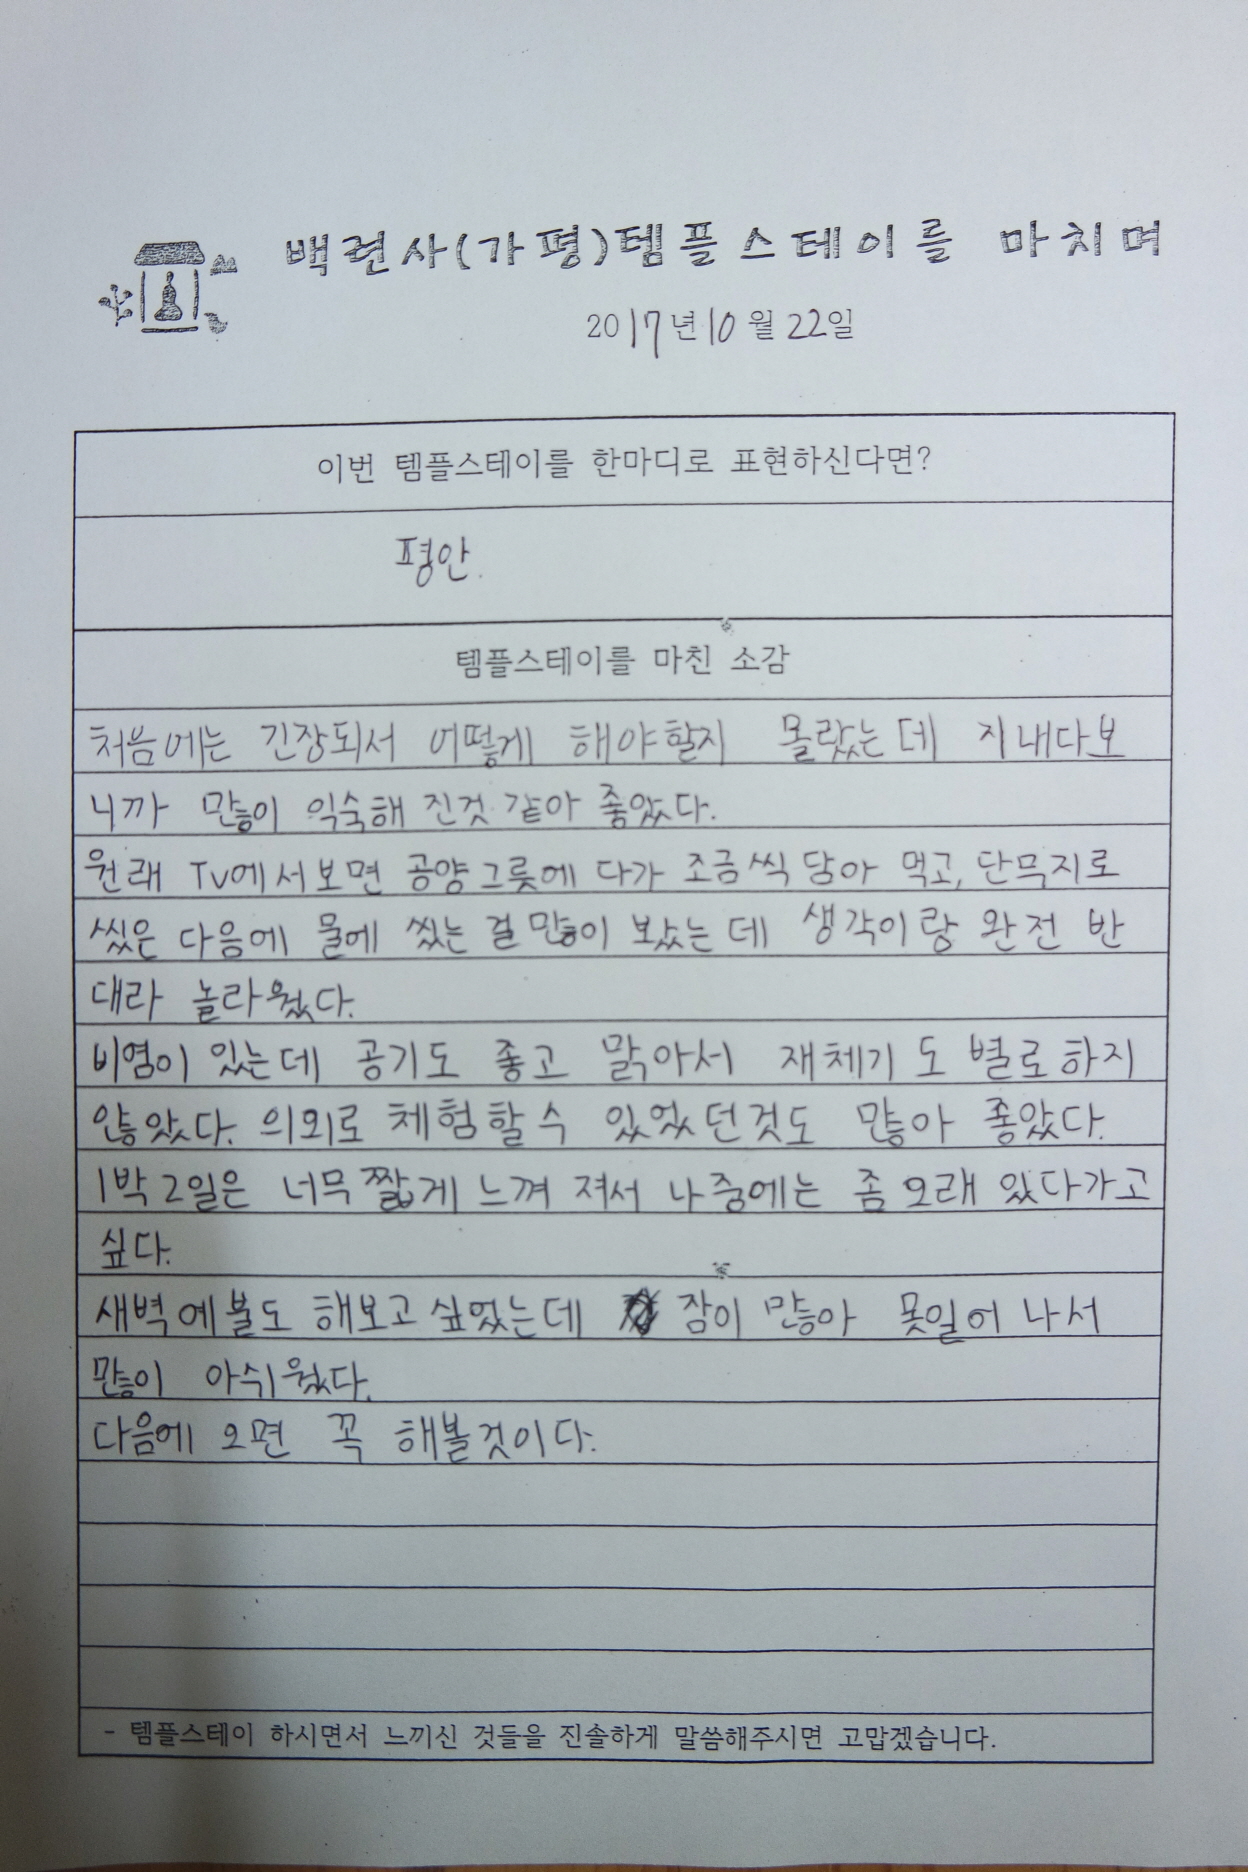 백련사(가평)템플스테이를 마치며
2017년 10월 22일
이번 템플스테이를 한마디로 표현하신다면?
평안.
템플스테이를 마친 소감
처음에는 긴장되서 어떻게 해야할지 몰랐는데 지내다보
니까 많이 익숙해 진것 같아 좋았다.
원래 TV에서보면 공양그릇에 다가 조금씩 담아 먹고, 단무지로
씼은 다음에 물에 씼는 걸 많이 봤는데 생각이랑 완전 반
대라 놀라웠다.
비염이 있는데 공기도 좋고 맑아서 재체기도 별로하지
않았다. 의외로 체험할수 있었던것도 많아 좋았다.
1박 2일은 너무 짧게 느껴 져서 나중에는 좀 오래 있다가고
싶다.
새벽 예불도 해보고 싶었는데 잠이 많아 못일어 나서
많이 아쉬웠다.
다음에 오면 꼭 해볼것이다.
- 템플스테이 하시면서 느끼신 것들을 진솔하게 말씀해주시면 고맙겠습니다.